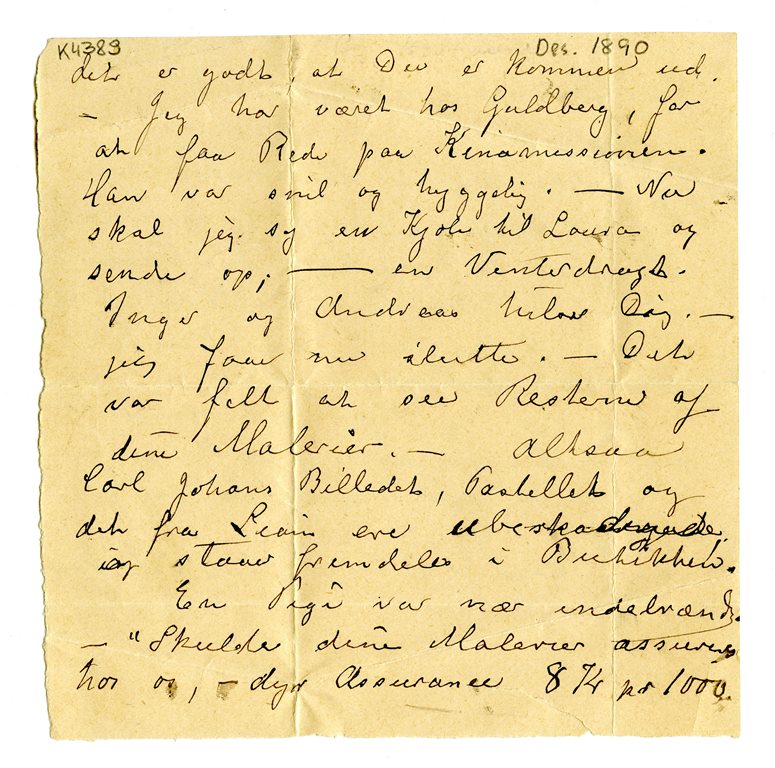 K4383 Des. 1890
det er godt, at Du er kommen ud.
– Jeg har været hos Guldberg, for
at faa Rede paa Kinamissionen.
Han var snil og hyggelig. — Nu
skal jeg sy en Kjole til Laura og
sende op; — en Venterdragt.
Inger og Andreas hilser Dig. –
jeg faar nu slutte. – Det
var fælt at see Resterne af
dine Malerier. – Altsaa
Carl Johans Billedet, Pastellet og
det fra Ljan ere ubeskadigede
og staar fremdeles i Butikken.
En Pige var nær indebrændt.
– "Skulde dine Malerier assureres
hos os, – dyr Assurance 8 Kr pr 1000